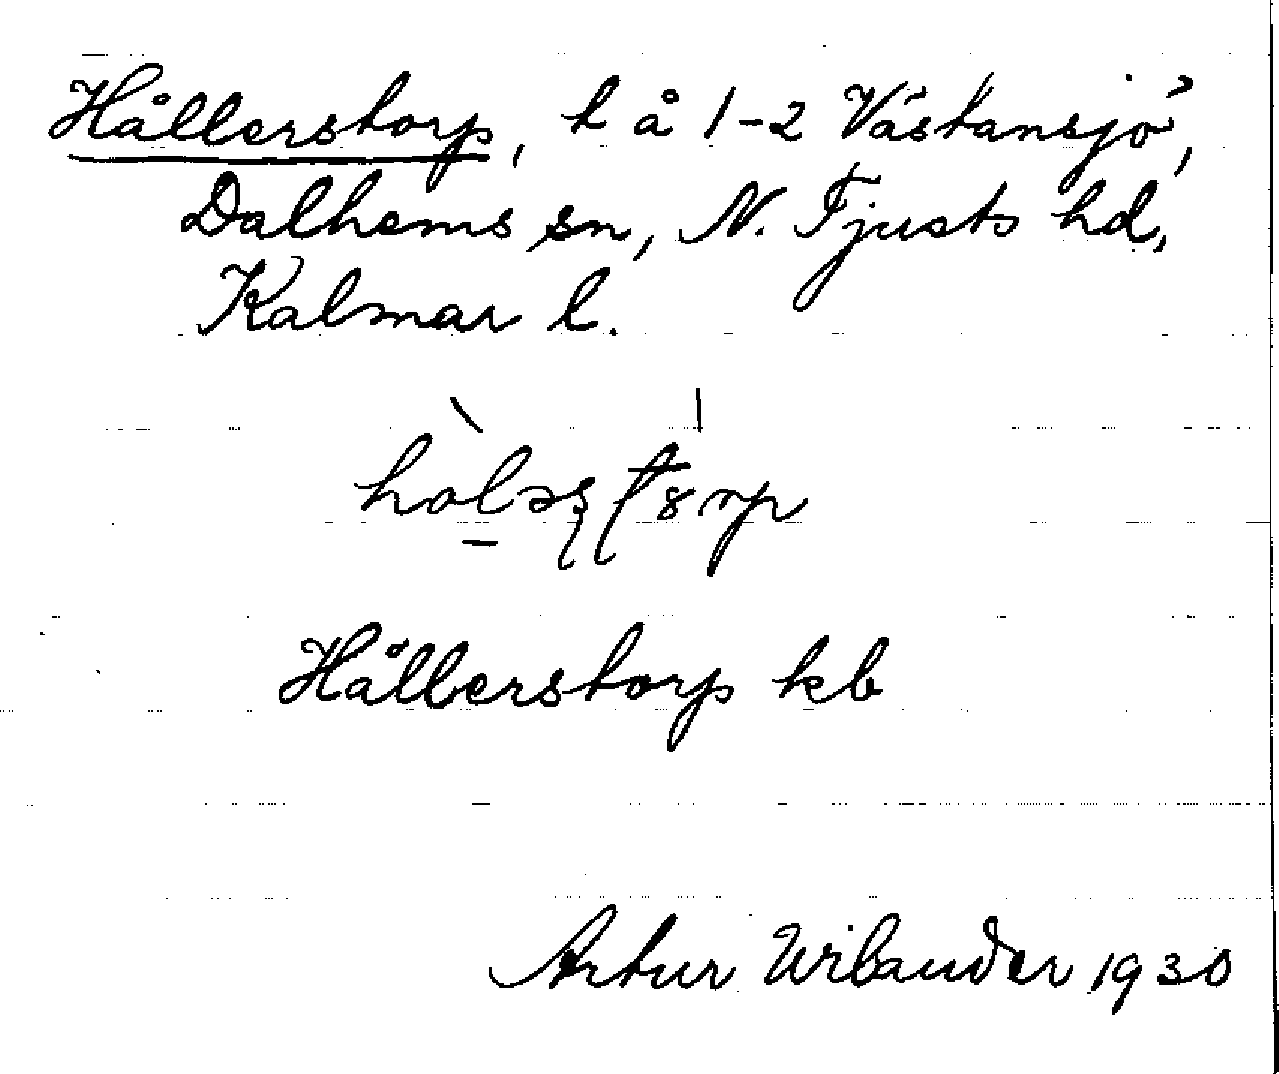 Hållerstorp, t å 1-2 Västansjö,
Dalhems sn, N. Tjusts hd,
Kalmar l.
Hållerstorp kb
Artur Wilander 1930